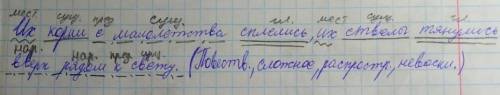 мест. сущ. пред. сущ. гл. мест сущ. гл.
Их корни с малолетства сплелись, их стволы тянулись
нар. нар. пред сущ.
вверх рядом к свету. (Повеств., сложное, распростр., невоскл.)